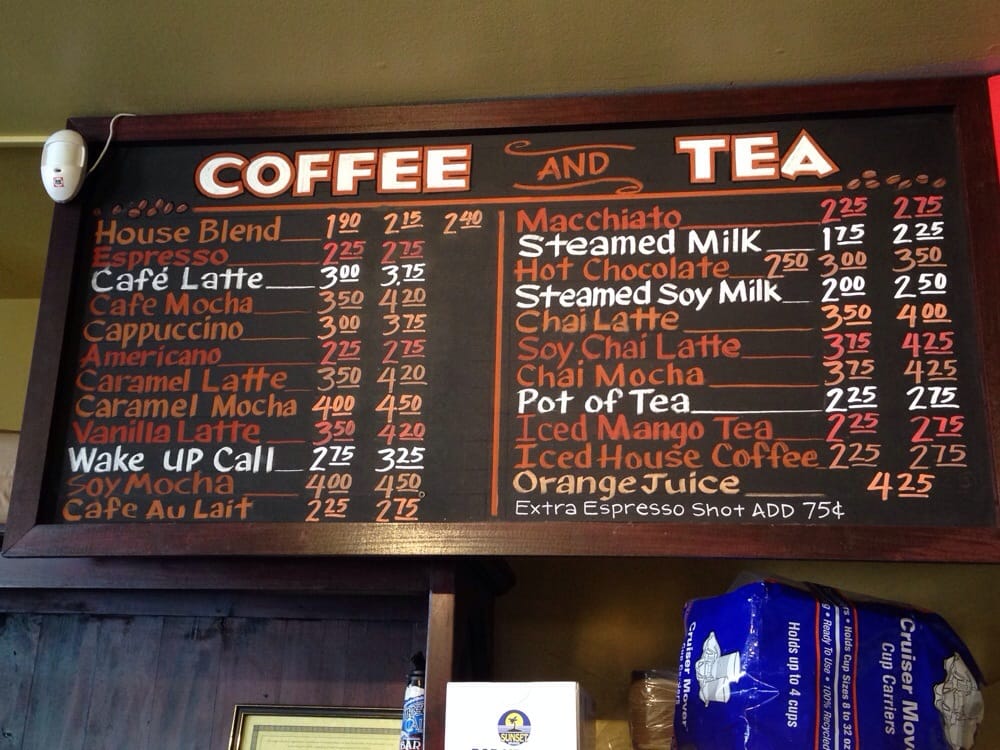 COFFEE AND TEA
House Blend 1.90 2.15 2.40
Espresso 2.25 2.75
Café Latte 3.00 3.75
Cafe Mocha 3.50 4.20
Cappuccino 3.00 3.75
Americano 2.25 2.75
Caramel Latte 3.50 4.20
Caramel Mocha 4.00 4.50
Vanilla Latte 3.50 4.20
Wake UP Call 2.75 3.25
Soy Mocha 4.00 4.50
Cafe Au Lait 2.25 2.75
Macchiato 2.25 2.75
Steamed Milk 1.75 2.25
Hot Chocolate 2.50 3.00 3.50
Steamed Soy Milk 2.00 2.50
Chai Latte 3.50 4.00
Soy Chai Latte 3.75 4.25
Chai Mocha 3.75 4.25
Pot of Tea 2.25 2.75
Iced Mango Tea 2.25 2.75
Iced House Coffee 2.25 2.75
Orange Juice 4.25
Extra Espresso Shot ADD 75¢
Cruiser Mover
Cup Carriers
Holds Cup Sizes 8 to 32
Ready To Use • 100% Recycled
Holds up to 4 cups
Cruiser Mover
SUNSET
BAR